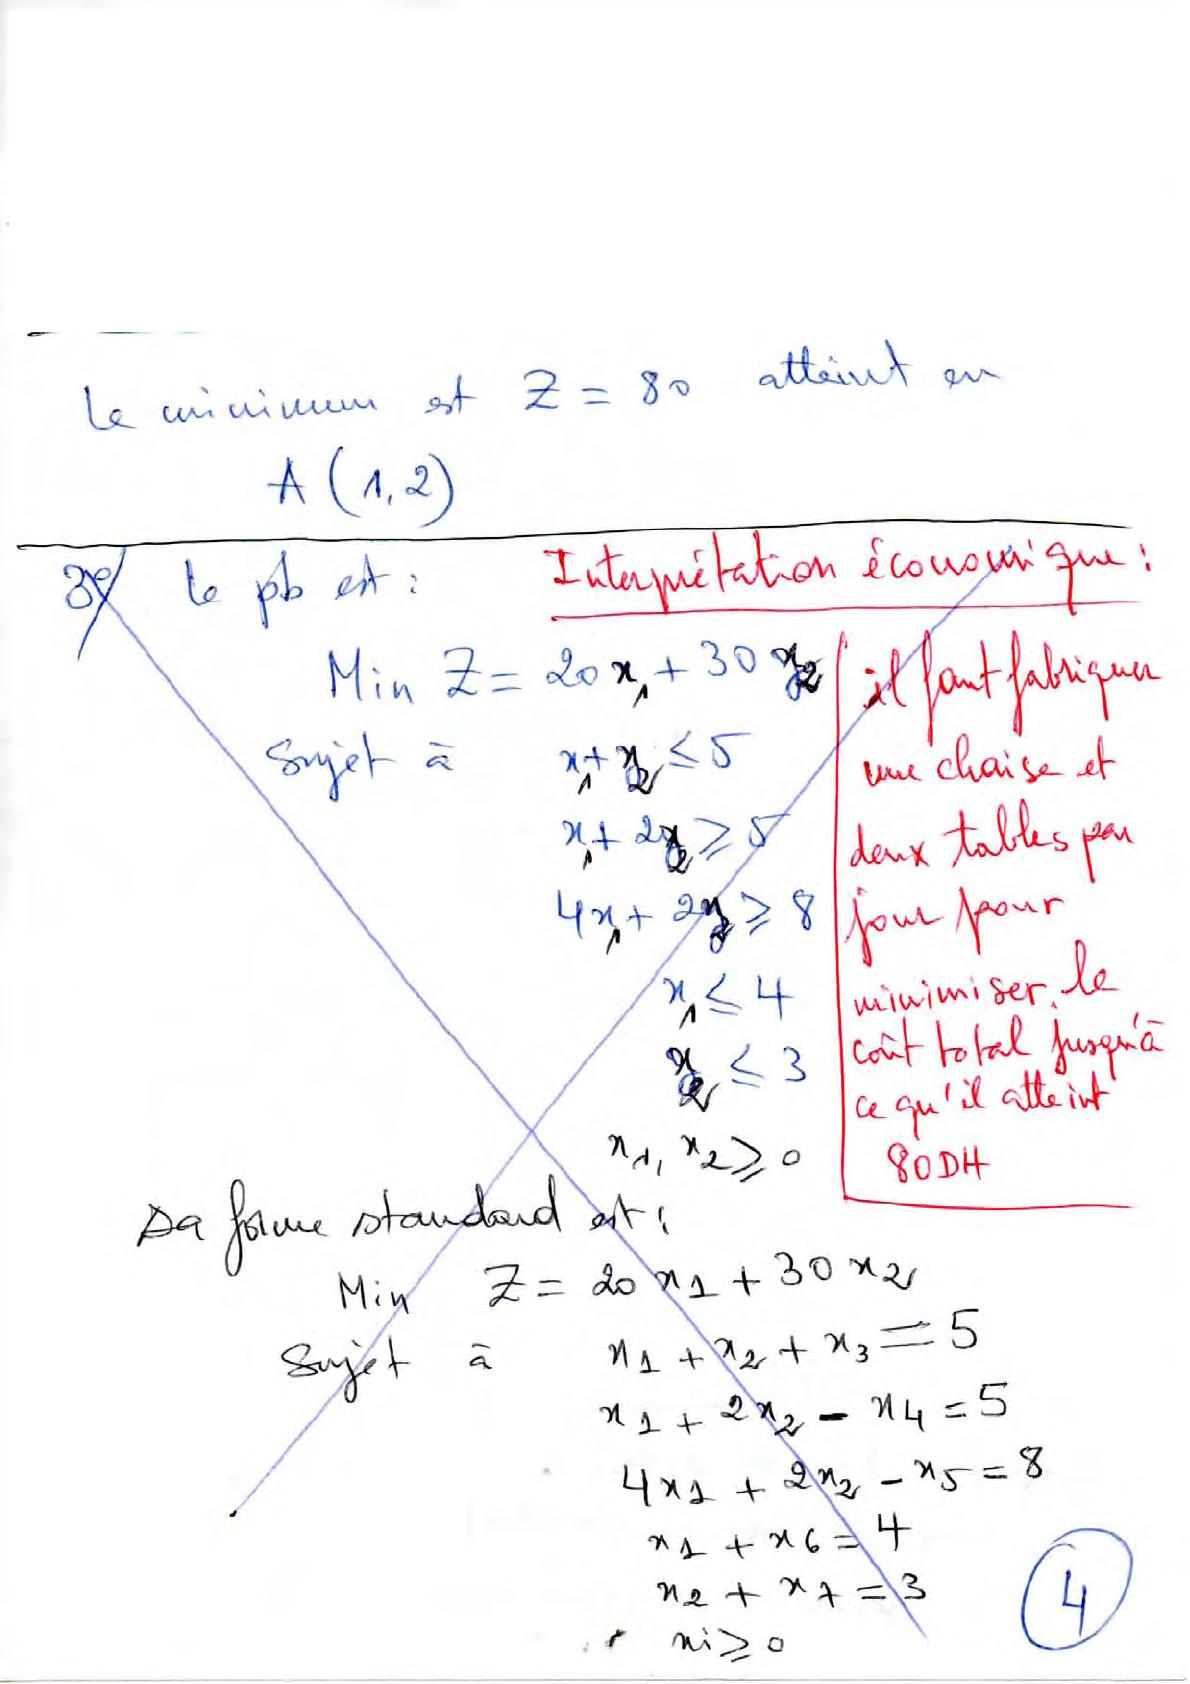 Le minimum est Z = 80 atteint en
A (1,2)
3°/ Le pb est :
Min Z = 20x₁ + 30x₂
Sujet à x₁ + x₂ ≤ 5
x₁ + 2x₂ ≥ 5
4x₁ + 2x₂ ≥ 8
x₁ ≤ 4
x₂ ≤ 3
x₁, x₂ ≥ 0
Interprétation économique :
il faut fabriquer
une chaise et
deux tables par
jour pour
minimiser le
coût total jusqu'à
ce qu'il atteint
80DH
Sa forme standard est :
Min Z = 20x1 + 30x2
Sujet à x1 + x2 + x3 = 5
x1 + 2x2 - x4 = 5
4x1 + 2x2 - x5 = 8
x1 + x6 = 4
x2 + x7 = 3
xi ≥ 0
4